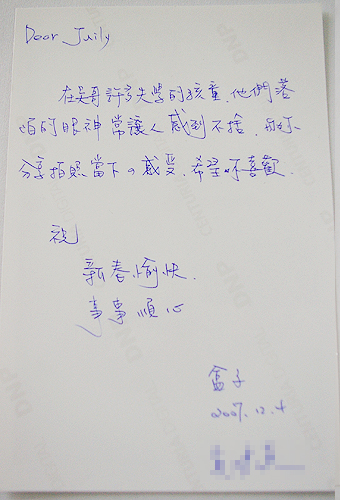 Dear Juily
在吳哥許多失學的孩童,他們落
陌的眼神常讓人感到不捨,
分享拍照當下の感受,希望妳喜歡.
祝
新春愉快.
事事順心
盒子
2007.12.4
DNP